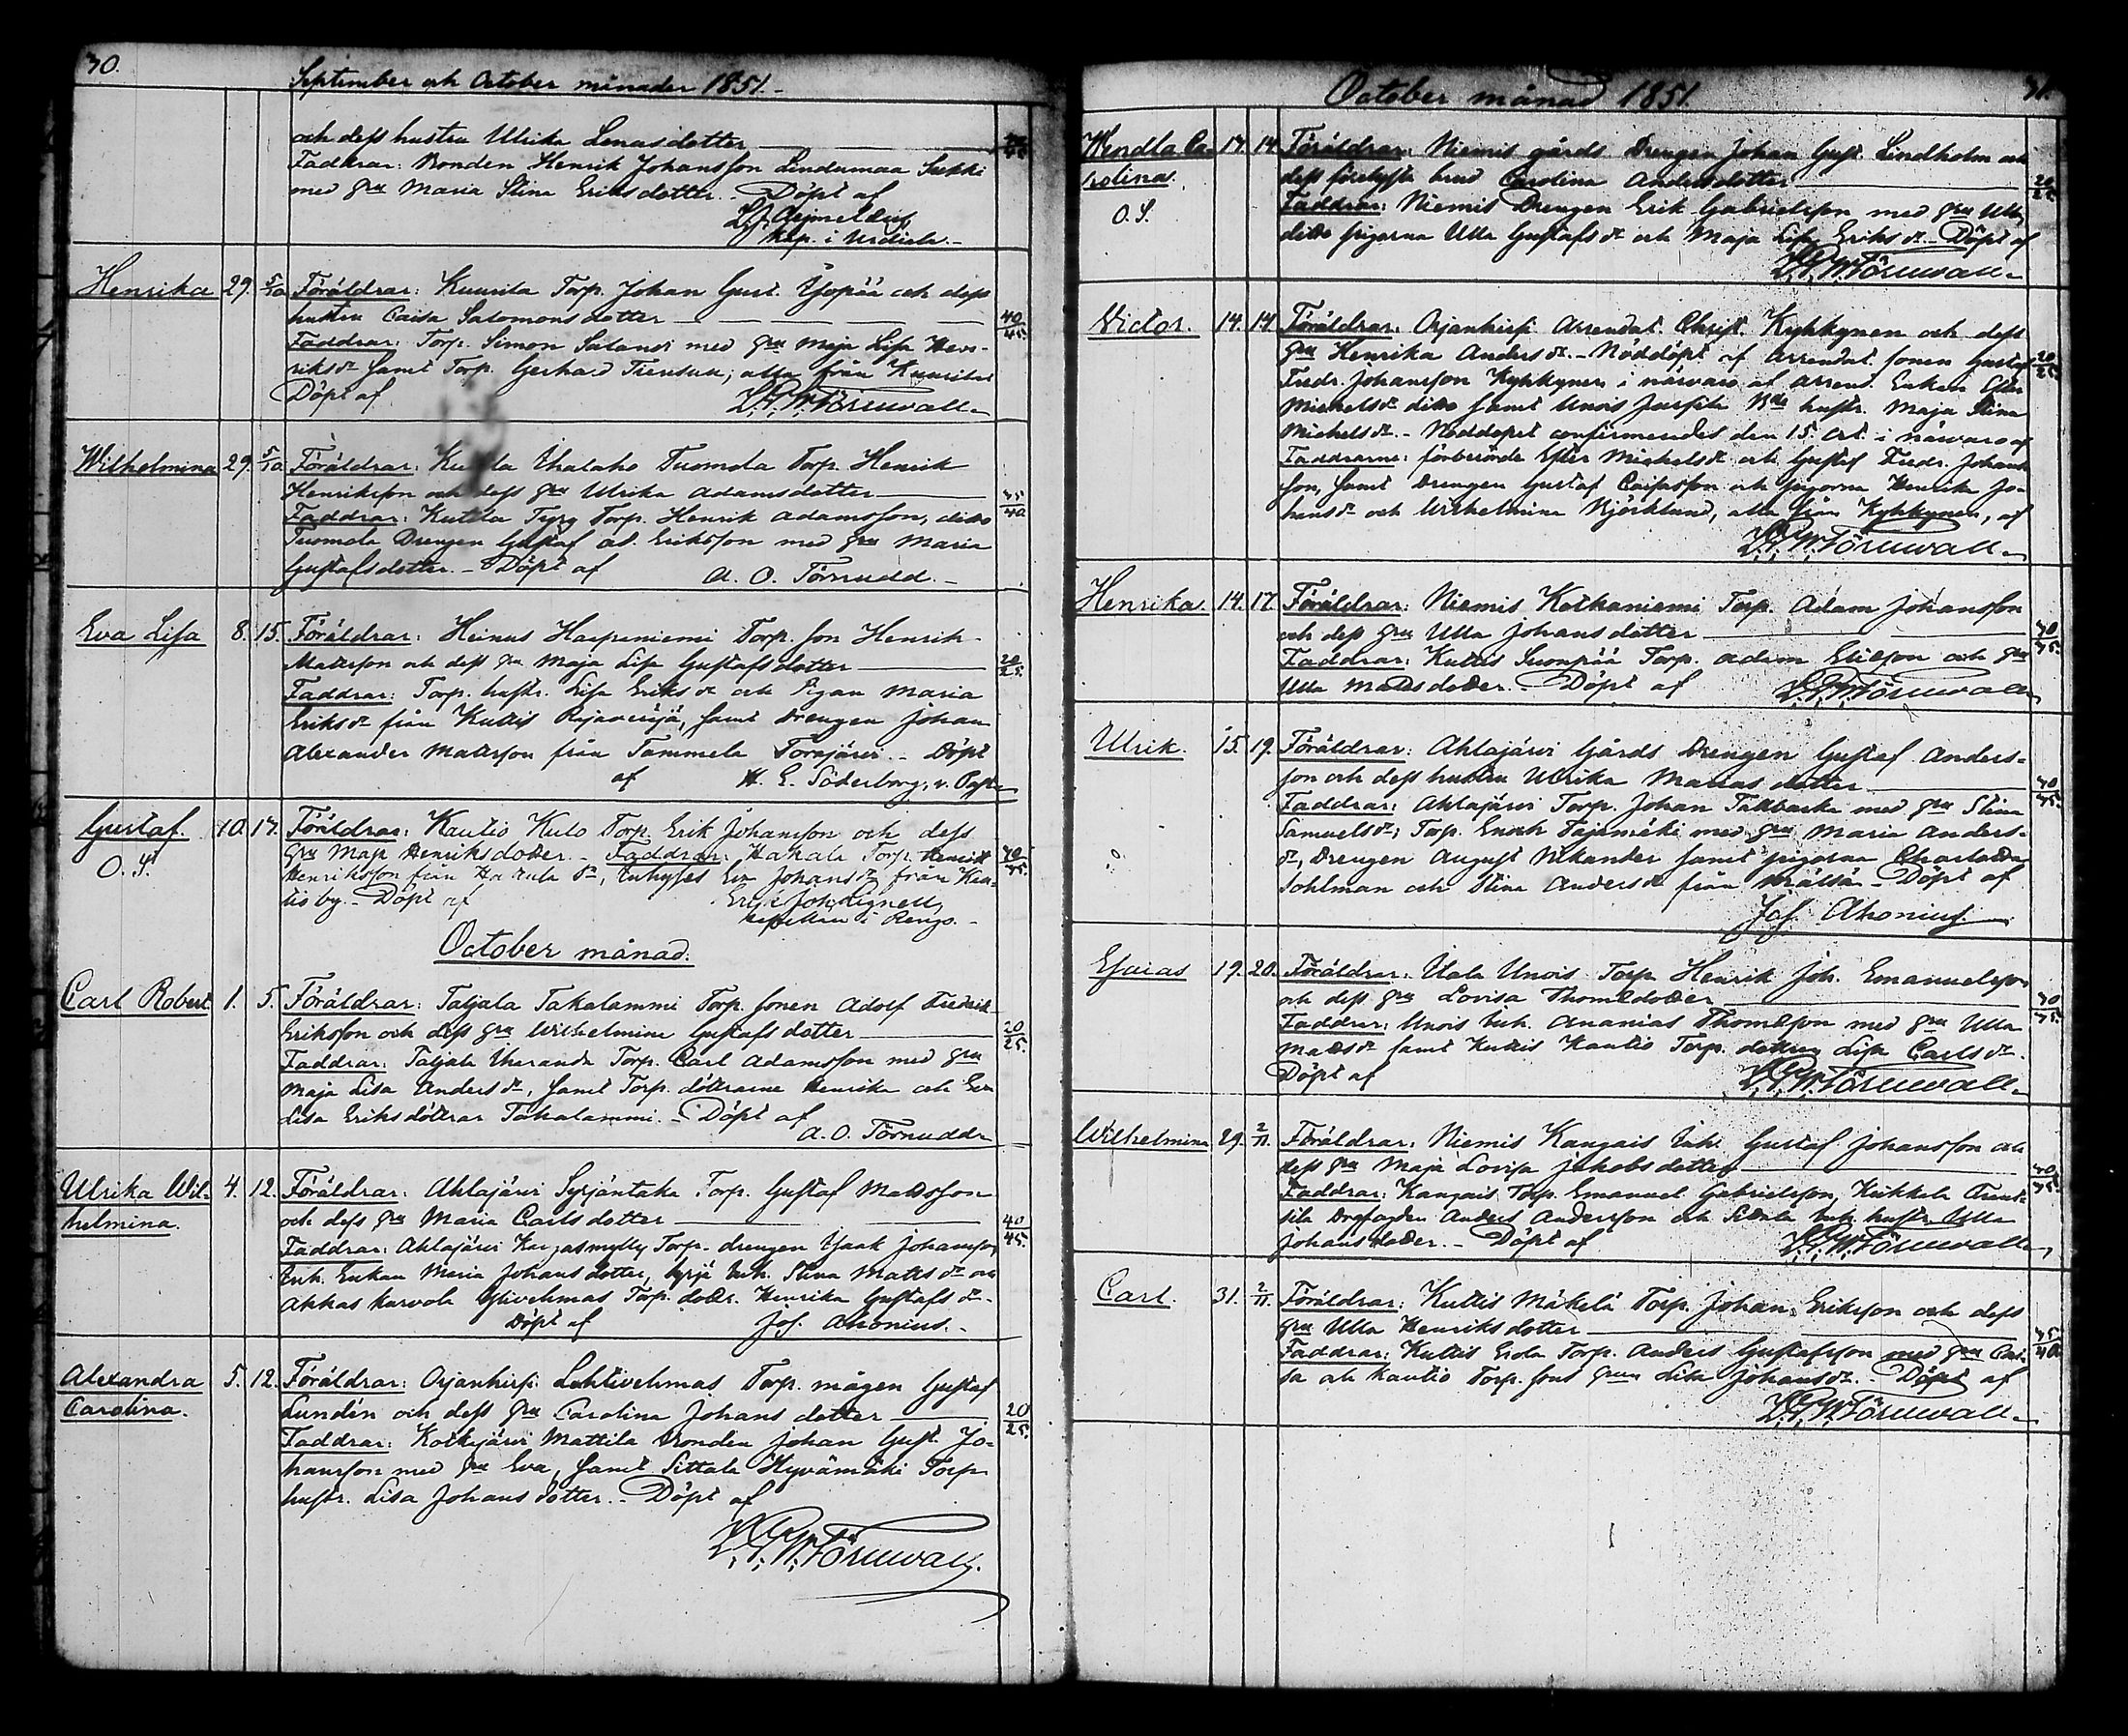 30.
September och October månader 1851.-
och dess hustru Ulrika Lenasdotter
Faddrar: Bonden Henrik Johansson Lindumaa Sukki
med hru Maria Stina Eriksdotter. - Döpt af
kap. i Urdiala.-
Henrika 29. 5/10 Föräldrar: Kuurila Torp. Johan Gust. Yöpää och dess
hustru Caisa Salomonsdotter 40/45.
Faddrar: Torp. Simon Salandr med hru Maja Lisa Hen-
riksdr samt Torp. Gerhard ; alla från Kuurila
Döpt af L.G.W. Förewall
Wilhelmina 29. 5/10 Föräldrar: Kutila Uhalaho Tuomola Torp. Henrik
Henriksson och dess hru Ulrika Adamsdotter 35/40
Faddrar: Kutila Tyry Torp. Henrik Adamsson, ditto
Tuomola Drengen Gustaf Ad. Eriksson med hru Maria
Gustafsdotter. - Döpt af A. O. Törnudd.-
Eva Lisa 8. 15. Föräldrar: Heinus Haapaniemi Torp. son Henrik
Mattsson och dess hru Maja Lisa Gustafsdotter 20/25.
Faddrar: Torp. hustr. Lisa Eriksdr och Pigan Maria
Eriksdr från Kuttis Rajaveräjä, samt Drengen Johan
Alexander Mattsson från Tammela Torajärvi. - Döpt
af H. E. Söderborg, v. Past.
Gustaf. 10. 17. Föräldrar: Kautio Kulo Torp. Erik Johansson och dess
O. S. hru Maja Henriksdotter. - Faddrar: Hakala Torp. Henrik 40/45.
Henriksson från Hakala dr, Inhyses Eva Johansdr från Kau-
tio by. - Döpt af Erik Joh. Lignell,
kapellan i Rengo.-
October månad.
Carl Robert 1. 5. Föräldrar: Taljala Takalammi Torp. sonen Adolf Fredrik
Eriksson och dess hru Wilhelmina Gustafsdotter 20/25.
Faddrar: Taljala Uheranda Torp. Carl Adamsson med hru
Maja Lisa Andersdr, samt Torp. döttrarne Henrika och Eva
Lisa Eriksdöttrar Takalammi. - Döpt af
A. O. Törnudd
Ulrika Wil- 4. 12. Föräldrar: Ahlajärvi Syrjäntaka Torp. Gustaf Mattsson
helmina. och dess hru Maria Carlsdotter 40/45.
Faddrar: Ahlajärvi Kangasmylly Torp. drengen Isaak Johansson
Inh. Enkan Maria Johansdotter, Syrjä Inh. Stina Mattsdr och
Akkaskarvola Torp. dottr. Henrika Gustafsdr.
Döpt af Jos. Ahonius.-
Alexandra 5. 12. Föräldrar: Orjanhirsi Lehtivehmas Torp. mågen Gustaf
Carolina. Lundén och dess hru Carolina Johansdotter 20/25.
Faddrar: Kolkejärvi Mattila Bonden Johan Gust. Jo-
hansson med hru Eva, samt Sittala Hyvämäki Torp.
hustr. Lisa Johansdotter. - Döpt af
L.G.W. Förewall.
October månad 1851. 31.
Wendla Ca- 14. 14. Föräldrar: Niemis gårds Drengen Johan Gust. Lindholm och
rolina. dess förelyste brud Carolina Andersdotter 20/25
O. S. Faddrar: Niemis Drengen Erik Gabrielsson med hru Ulla,
ditto pigorna Ulla Gustafsdr och Maja Lisa Eriksdr. - Döpt af
L.G.W. Förewall
Victor. 14. 14. Föräldrar: Orjanhirsi Arrendat. Christ. Kyhkynen och dess
hru Henrika Andersdr. - Nöddöpt af Arrendat. sonen Gustaf 20/25
Fredr. Johansson Kyhkynen i närvaro af arrend. Enkan Ester
Michelsdr ditto samt Unois Jussila Bde hustr. Maja Stina
Michelsdr. - Nöddopet confirmerades den 15. Oct. i närvaro af
Faddrarne: förberörde Ester Michelsdr och Gustaf Fredr. Johans-
son, samt Drengen Gustaf och pigorna Henrika Jo-
hansdr och Wilhelmina Björklund, alla från Kyhkynen, af
L.G.W. Förewall
Henrika. 14. 17. Föräldrar: Niemis Kotkaniemi Torp. Adam Johansson
och dess hru Ulla Johansdotter 30/35.
Faddrar: Kuttis Suonpää Torp. Adam Ericsson och hru
Ulla Mattsdotter. - Döpt af L.G.W. Förewall
Ulrik. 15. 19. Föräldrar: Ahlajärvi Gårds Drengen Gustaf Anders-
son och dess hustru Ulrika Mariasdotter 30/35.
Faddrar: Ahlajärvi Torp. Johan Tallbacka med hru Stina
Samuelsdr; Torp. Enoch Fajsmäki med hru Maria Anders-
dr, Drengen August Nikander samt pigorna Charlotta
Sohlman och Stina Andersdr från . - Döpt af
Jos. Ahonius.
Esaias 19. 20. Föräldrar: Uotila Unois Torp. Henrik Joh. Emanuelsson
och dess hru Lovisa Thomædotter 30/35.
Faddrar: Unois Inh. Ananias Thomæsson med hru Ulla
Mattsdr samt Kuttis Kautio Torp. dottren Lisa Carlsdr.
Döpt af L.G.W. Förewall
Wilhelmina 29. 2/11. Föräldrar: Niemis Kangais Inh. Gustaf Johansson och
dess hru Maja Lovisa Jakobsdotter 30/35.
Faddrar: Kangais Torp. Emanuel Gabrielsson, Kuhkela
Anders Andersson och Sittala Inh. hustr. Ulla
Johansdotter. - Döpt af L.G.W. Förewall
Carl. 31. 2/11. Föräldrar: Kuttis Mäkelä Torp. Johan Eriksson och dess
hru Ulla Henriksdotter 35/40
Faddrar: Kuttis Torp. Anders Gustafsson med hru Cai-
sa och Kautio Torp. sons hrun Lisa Johansdr. - Döpt af
L.G.W. Förewall